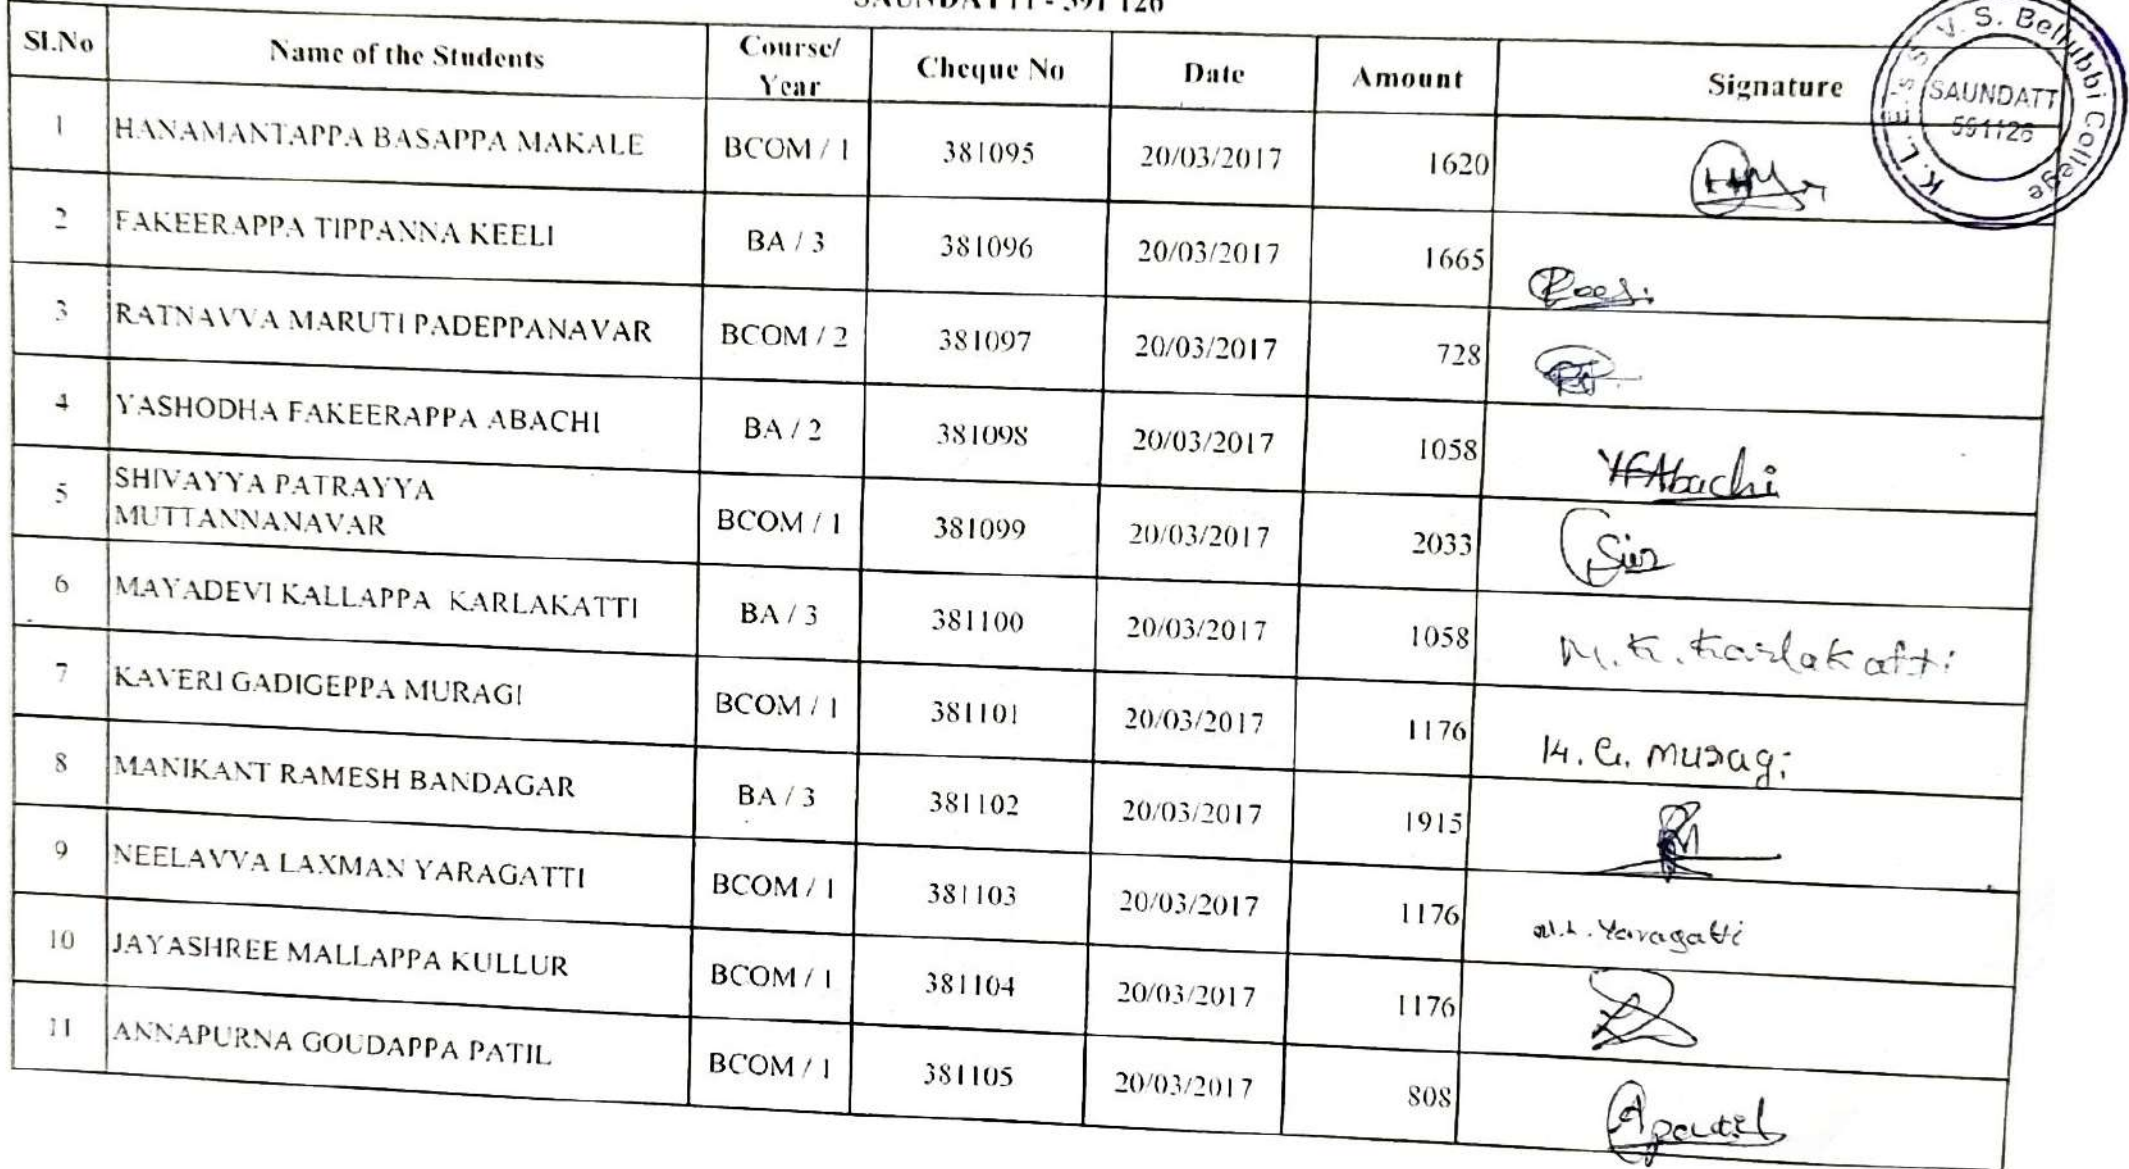 SAUNDATTI - 591 126
Sl.No Name of the Students Course/ Year Cheque No Date Amount Signature
K. L. E. S's S. V. S. Bellubbi College
SAUNDATT
591126
1 HANAMANTAPPA BASAPPA MAKALE BCOM / 1 381095 20/03/2017 1620
2 FAKEERAPPA TIPPANNA KEELI BA / 3 381096 20/03/2017 1665
3 RATNAVVA MARUTI PADEPPANAVAR BCOM / 2 381097 20/03/2017 728
4 YASHODHA FAKEERAPPA ABACHI BA / 2 381098 20/03/2017 1058 YFAbachi
5 SHIVAYYA PATRAYYA
MUTTANNANAVAR BCOM / 1 381099 20/03/2017 2033
6 MAYADEVI KALLAPPA KARLAKATTI BA / 3 381100 20/03/2017 1058 M.K.Karlakatti
7 KAVERI GADIGEPPA MURAGI BCOM / 1 381101 20/03/2017 1176 K. G. Muragi
8 MANIKANT RAMESH BANDAGAR BA / 3 381102 20/03/2017 1915
9 NEELAVVA LAXMAN YARAGATTI BCOM / 1 381103 20/03/2017 1176 N.L. Yaragatti
10 JAYASHREE MALLAPPA KULLUR BCOM / 1 381104 20/03/2017 1176
11 ANNAPURNA GOUDAPPA PATIL BCOM / 1 381105 20/03/2017 808 Apatil